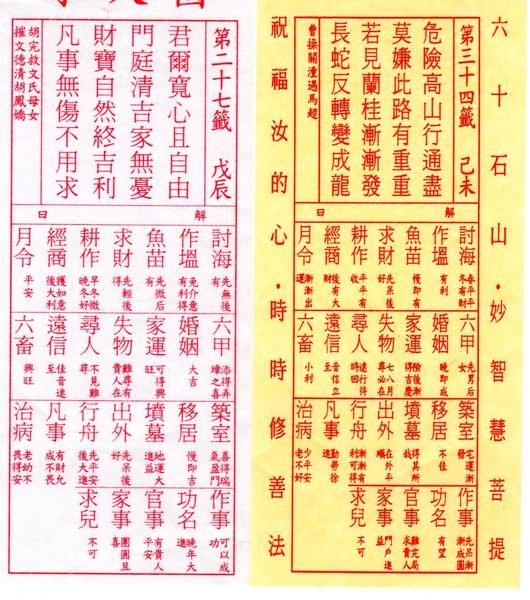 六十石山・妙智慧菩提
第三十四籤 己未
危險高山行通盡
莫嫌此路有重重
若見蘭桂漸漸發
長蛇反轉變成龍
曹操關潼遇馬超
解曰
討海 春平平冬有財
作塭 有利
魚苗 慢即有
求財 先呆後好
耕作 平平有收
經商 後有大財
月令 漸漸出運
六甲 先男后女
婚姻 晚即成
家運 險後漸得吉慶
失物 七八月尋必在
尋人 遠行待時回
遠信 音信立至
六畜 小利
築室 宅運漸發
移居 不佳
墳墓 得其所哉
出外 在外平順
行舟 漸漸有利可得
凡事 勤勞徐進
治病 少平安老不好
作事 先呆漸漸成圓
功名 有望
官事 難完局求貴人
家事 門戶進益
求兒 不可
祝福汝的心・時時修善法
第二十七籤 戊辰
君爾寬心且自由
門庭清吉家無憂
財寶自然終吉利
凡事無傷不用求
胡完救文氏母女
摧文德清胡鳳嬌
解曰
討海 先無後有
作塭 免介意有利得
魚苗 先微后有
求財 先輕後得
耕作 早冬微晚冬好
經商 獲如意後大利
月令 平安
六甲 添得弄璋之喜
婚姻 大吉
家運 可得興旺
失物 難尋有貴人在
尋人 不見難尋
遠信 佳音速至
六畜 興旺
築室 喜得瑞氣盈門
移居 慢即吉
墳墓 地運大進益
出外 先呆後好
行舟 先平安後大進
凡事 有財允成不畏
治病 老幼不畏得安
作事 可以成功
功名 晚年大吉
官事 有貴人平安
家事 團圓且喜
求兒 不可